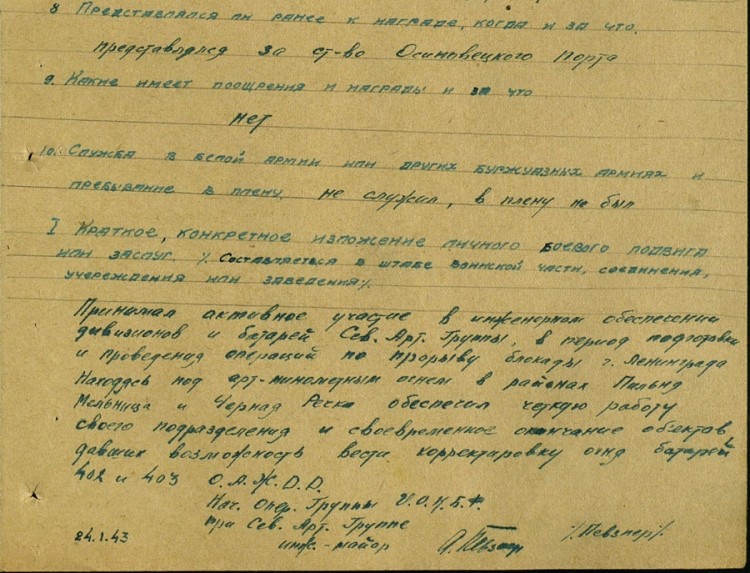 8 Представлялся ли ранее к награде, когда и за что.
представлялся за ст-во Осиновецкого Порта
9. Какие имеет поощрения и награды и за что
нет
10. Служба в белой армии или других буржуазных армиях и
пребывание в плену. не служил, в плену не был
I Краткое, конкретное изложение личного боевого подвига
или заслуг. /. Составляется в штабе воинской части, соединения,
учереждения или заведения/.
Принимал активное участие в инженерном обеспечении
дивизионов и батарей Сев. Арт. Группы, в период подготовки
и проведения операций по прорыву блокады г. Ленинграда
Находясь под арт-минометным огнем в районах Пильня
Мельница и Черная Речка обеспечил четкую работу
своего подразделения и своевременное окончание объектов
давших возможность вести корректировку огня батарей
402 и 403 О.А.Ж.Д.Д.
Нач. Опер. Группы У.О.И.Б.Ф.
при Сев. Арт. Группе
инж. - майор А. Певзнер /Певзнер/.
24.1.43